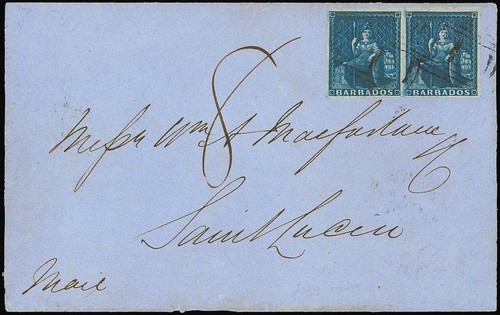 BARBADOS BARBADOS
8
Messrs Wm A Macfarlane
Saint Lucia
Mail